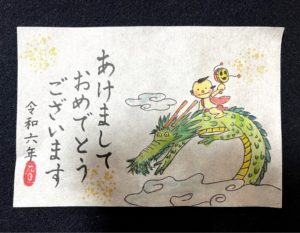 あけまして
おめでとう
ございます
令和六年
元旦